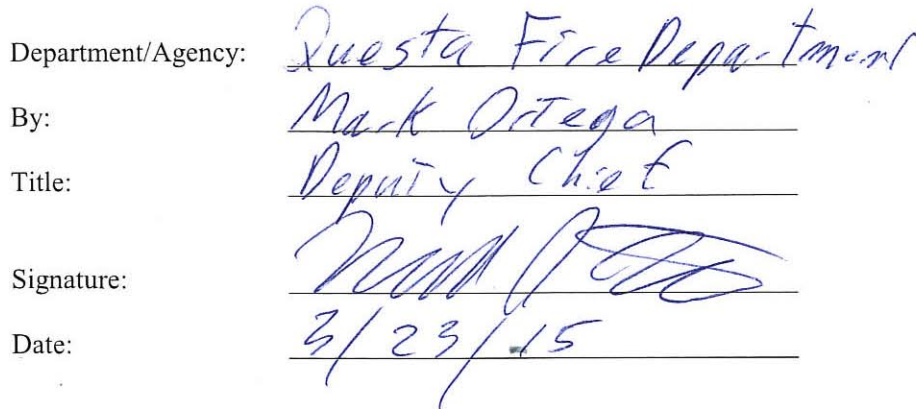 Department/Agency: Questa Fire Department
By: Mark Ortega
Title: Deputy Chief
Signature:
Date: 3/23/15